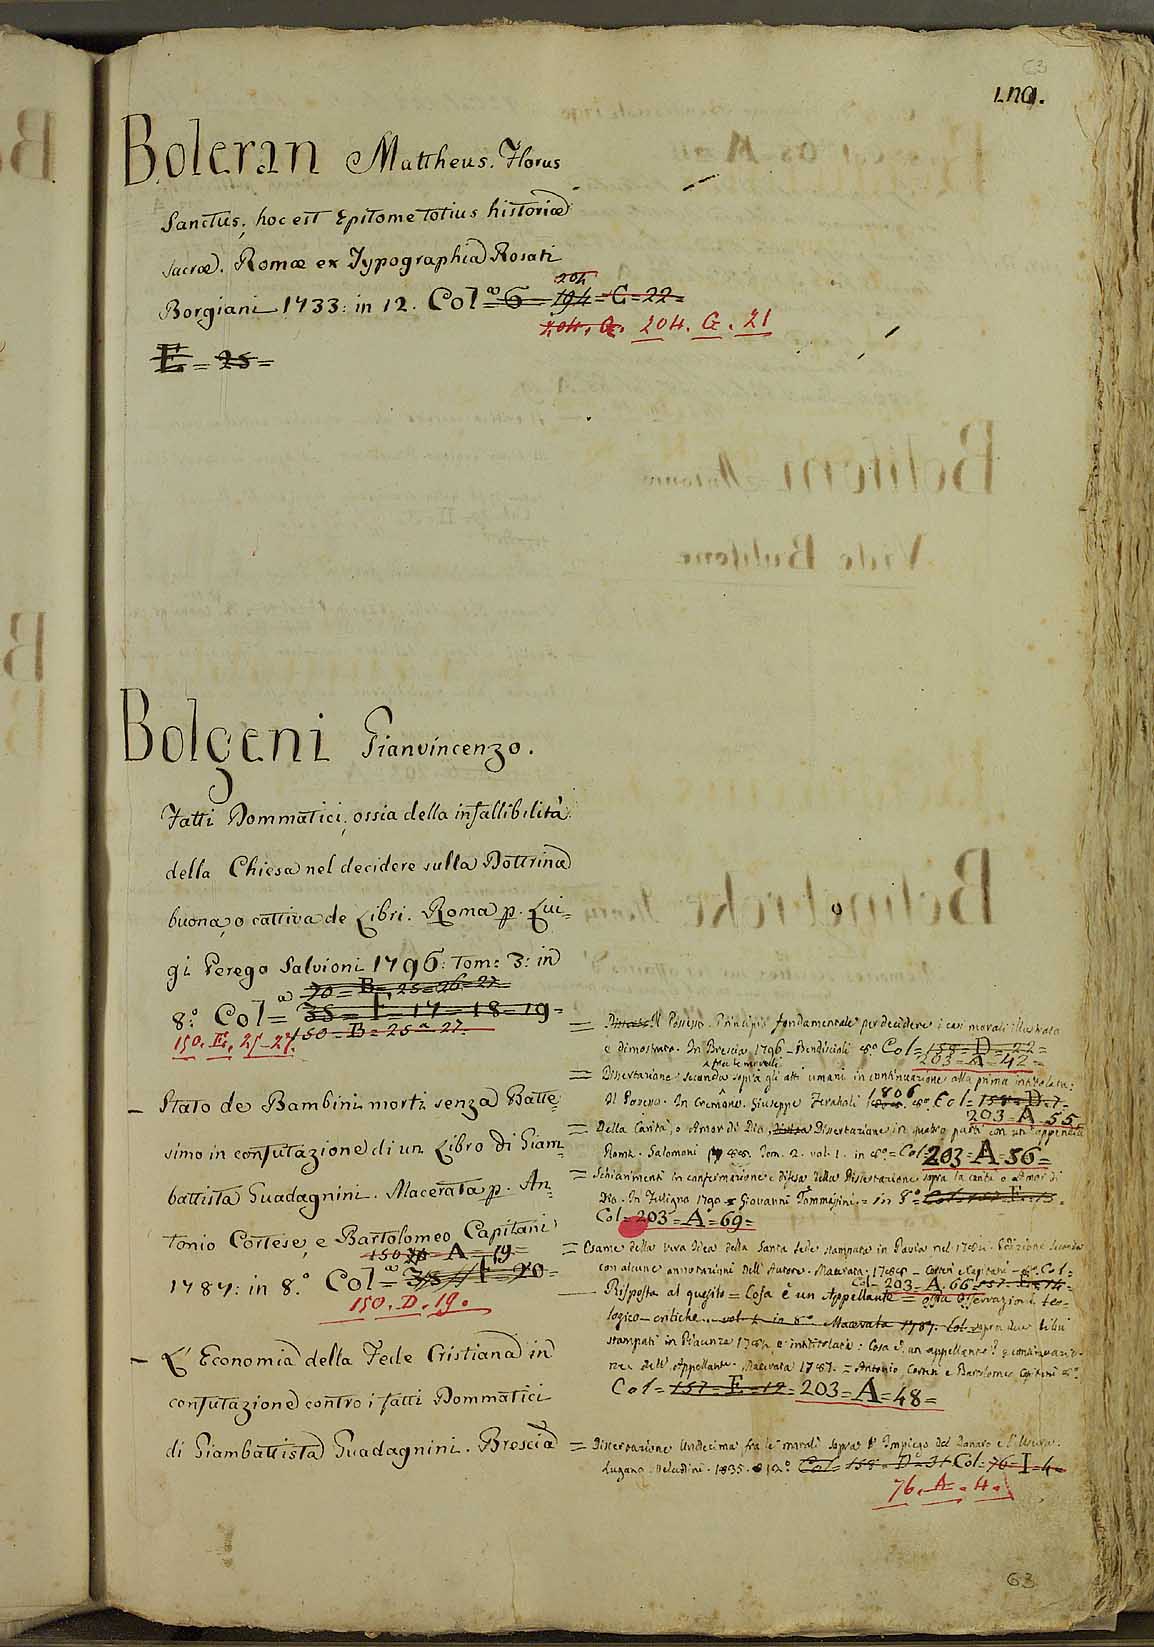 63
Boleran Mattheus. Florus
Sanctus; hoc est Epitome totius historiæ
sacræ. Romæ ex Typographia Rosati
Borgiani 1733: in 12. Colª 6 = 194 = C = 22 =
204
204. G. 204. G. 21
E = 25 =
Bolgeni Gianvincenzo.
Fatti Dommatici, ossia della infallibilità
della Chiesa nel decidere sulla Dottrina
buona, o cattiva de Libri. Roma p. Lui=
gi Perego Salvioni 1796: Tom: 3: in
70 = B = 25 = 26 = 27
8.° Colª = 35 = F = 17 = 18 = 19 =
150 = B = 25 a 27.
150. E. 25-27.
– Stato de Bambini morti senza Batte=
simo in confutazione di un Libro di Giam=
battista Guadagnini. Macerata p. An=
tonio Cortese, e Bartolomeo Capitani
150 = A = 19 =
1787: in 8.° Colª = F = 20 =
150. D. 19.
– L' Economia della Fede Cristiana in
confutazione contro i fatti Dommatici
di Giambattista Guadagnini. Brescia
= Il Possesso Principio fondamentale per decidere i casi morali illustrato
e dimostrato. In Brescia 1796 – Bendiscioli 8° Col = 158 = D = 22 =
203 = A = 42 =
= Dissertazione seconda fra le morali sopra gli atti umani in continuazione alla prima intitolata:
Il Possesso. In Cremona. Giuseppe Feraboli 1806 8° Col = 158 = D. 7 =
203 = A = 55
= Della Carità, o Amor di Dio, Dissertazione in quattro parti con un' appendice
Roma. Salomoni 1788. Tom. 2. vol. 1. in 8° = Col = 203 = A = 56 =
= Schiarimenti in confermazione e difesa della Dissertazione sopra la carità o Amor di
Dio. In Foligno 1790 Giovanni Tommasini. = in 8° = Col = 157 = E = 13 =
Col = 203 = A = 69 =
= Esame della vera Idea della Santa Sede stampata in Pavia nel 1784. Edizione seconda
con alcune annotazioni dell' Autore. Macerata. 1785 – Cortesi e Capitani – 8° Col =
Col = 203 = A. 66 = 157. E = 14 =
– Risposta al quesito = Cosa è un Appellante = ossia Osservazioni teo=
logico-critiche vol. 1. in 8° Macerata 1787. Col. sopra due libri
stampati in Piacenza 1784, e intitolati: Cosa è un appellante? e continuazio=
ne dell' Appellante. Macerata 1787. = Antonio Cortesi e Bartolomeo Capitani 8°
Col = 157 = E = 12 = 203 = A = 48 =
= Dissertazione Undecima fra le morali sopra l' Impiego del Danaro e l' Usura.
Lugano. Veladini. 1835. 12° Col = 158 = D = 31 Col = 76 = I = 4 =
76. A. 4.
63